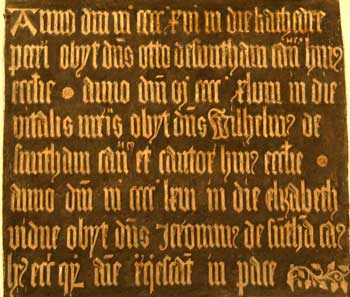 Anno dm̄ m cccc xvi in die kathedre
petri obyt dn̄s otto de southam can̄ huiꝰ
eccl̄ie • anno dm̄ m cccc xlvııı in die
vitalis mr̄is obyt dn̄s Wilhelmꝰ de
southam can̄ et cantor huiꝰ eccl̄ie •
anno dm̄ m cccc lxvi in die elizabeth
vidue obyt dn̄s Jeronimꝰ de suthā ca
eccl̄ qr̄ aīe reqescāt in pace